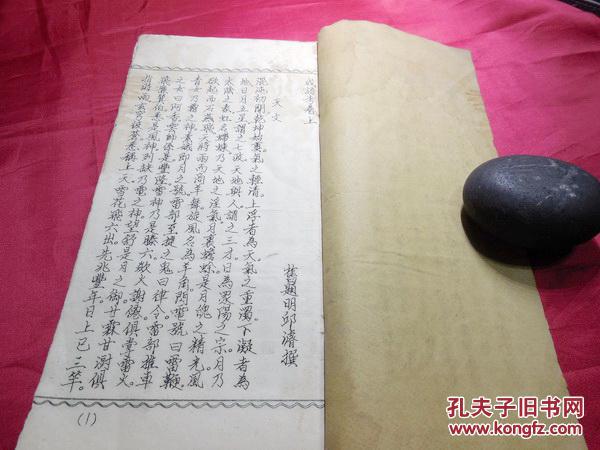 成語考卷上
明邱濬撰
天文
混沌初開乾坤始奠氣之輕清上浮者為天氣之重濁下凝者為
地日月五星謂之七政天地與人謂之三才日為衆陽之宗月乃
太陰之象虹名螮蝀乃天地之淫氣月裏蟾蜍是月魄之精光風
欲起而石燕飛天將雨而商羊舞旋風名為羊角閃電號曰雷鞭
青女乃霜之神素娥即月之號雷部至捷之鬼曰律令雷部推車
之女曰阿香雲師係是豐隆雪神乃是滕六歘火謝德俱掌雷火
飛廉箕伯悉是風神列缺乃電之神望舒是月之御甘霖甘澍俱
指時雨玄穹彼蒼悉稱上天雪花飛六出先兆豐年日上已三竿
(1)
孔夫子旧书网
www.kongfz.com